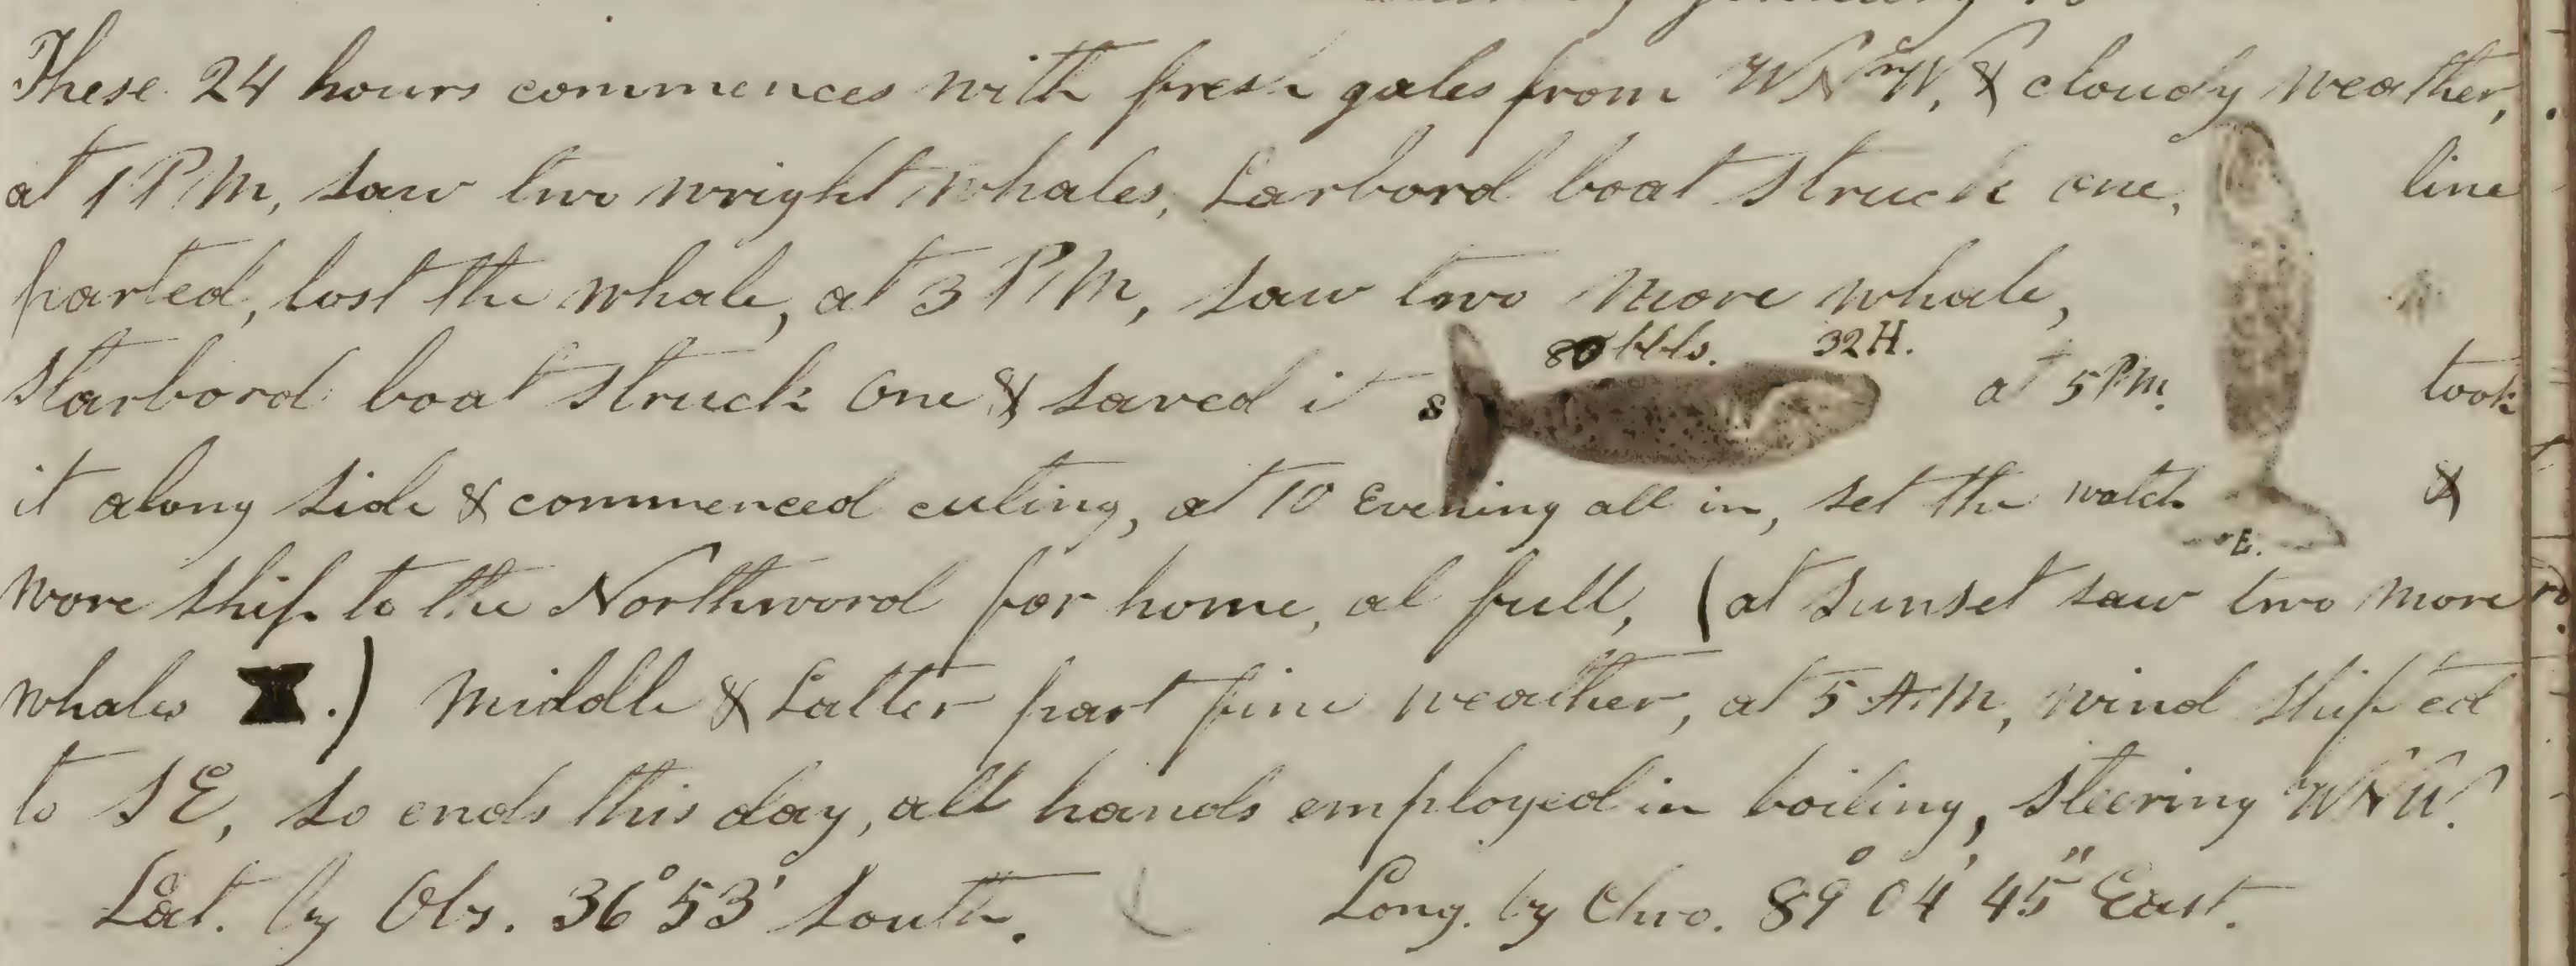 These 24 hours commences with fresh gales from WNW, & cloudy weather,
at 1 PM, saw two wright whales, Larbord boat struck one, line
parted, lost the whale, at 3 PM, saw two more whale,
80 bbls. 32 H.
Starbord boat struck one & saved it S at 5 PM. took
it along side & commenced cuting, at 10 Evening all in, set the watch &
E.
wore ship to the Northword for home, al full, (at sunset saw two more
whales .) Middle & Latter part fine weather, at 5 A.M, wind shifted
to SE, so ends this day, all hands employed in boiling, steering WNW.
Lat. by Obs. 36° 53' South. Long. by Chro. 89° 04' 45" East.